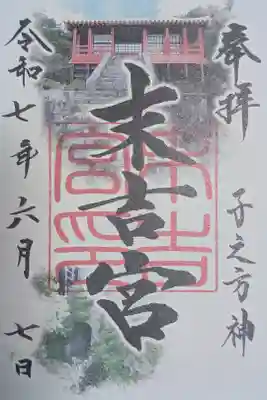 奉拝
子之方神
末吉宮
令和七年六月七日
末吉宮印